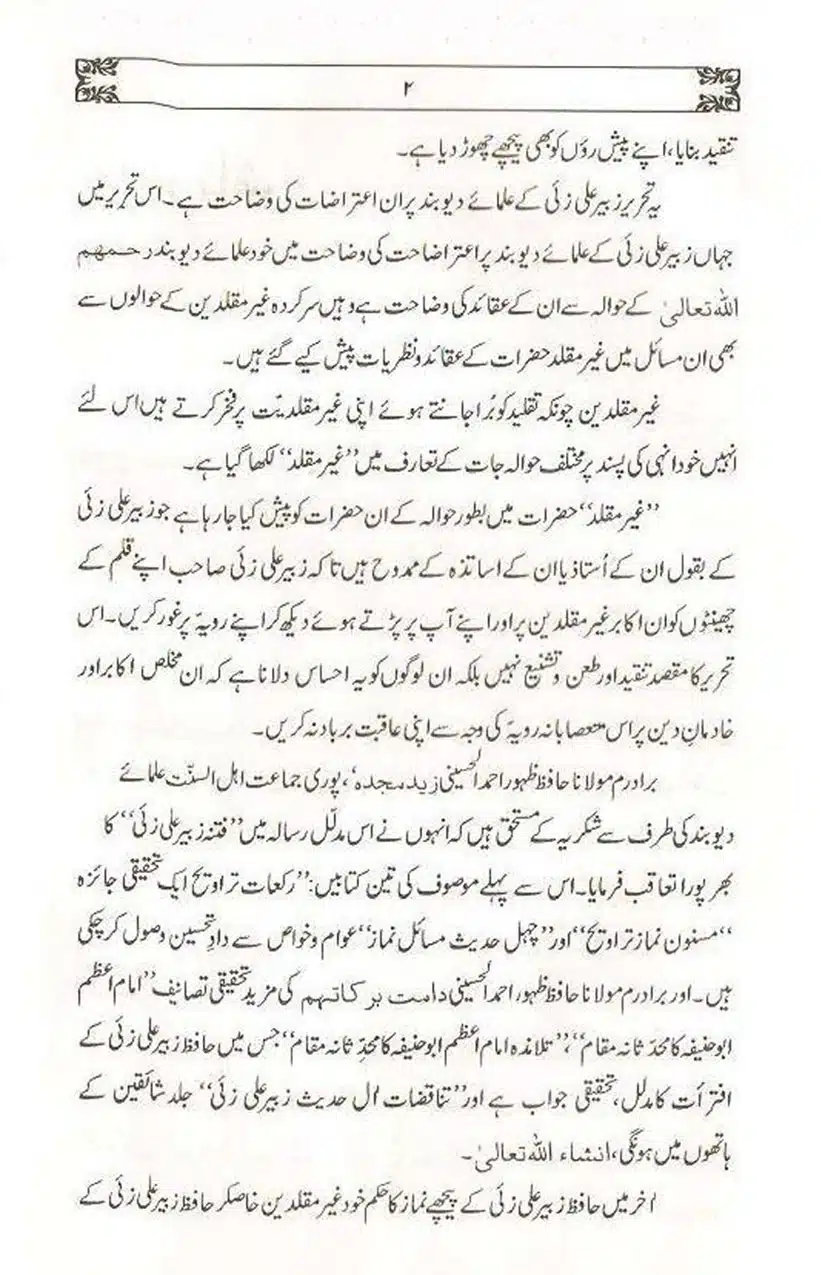 ۲
تنقید بنایا، اپنے پیش رؤں کو بھی پیچھے چھوڑ دیا ہے۔
یہ تحریر زبیر علی زئی کے علمائے دیوبند پر ان اعتراضات کی وضاحت ہے۔ اس تحریر میں
جہاں زبیر علی زئی کے علمائے دیوبند پر اعتراضاحت کی وضاحت میں خود علمائے دیوبند رحمھم
اللہ تعالیٰ کے حوالہ سے ان کے عقائد کی وضاحت ہے وہیں سرکردہ غیر مقلدین کے حوالوں سے
بھی ان مسائل میں غیر مقلد حضرات کے عقائد و نظریات پیش کیے گئے ہیں۔
غیر مقلدین چونکہ تقلید کو بُرا جانتے ہوئے اپنی غیر مقلدیّت پر فخر کرتے ہیں اس لئے
انہیں خود انہی کی پسند پر مختلف حوالہ جات کے تعارف میں ’’غیر مقلد‘‘ لکھا گیا ہے۔
’’غیر مقلد‘‘ حضرات میں بطور حوالہ کے ان حضرات کو پیش کیا جا رہا ہے جو زبیر علی زئی
کے بقول ان کے اُستاذ یا ان کے اساتذہ کے ممدوح ہیں تاکہ زبیر علی زئی صاحب اپنے قلم کے
چھینٹوں کو ان اکابر غیر مقلدین پر اور اپنے آپ پر پڑتے ہوئے دیکھ کر اپنے رویہّ پر غور کریں۔ اس
تحریر کا مقصد تنقید اور طعن و تشنیع نہیں بلکہ ان لوگوں کو یہ احساس دلانا ہے کہ ان مخلص اکابر اور
خادمانِ دین پر اس متعصابانہ رویہّ کی وجہ سے اپنی عاقبت برباد نہ کریں۔
برادرم مولانا حافظ ظہور احمد الحسینی زید مجدہ‘، پوری جماعت اہل السنّت علمائے
دیوبند کی طرف سے شکریہ کے مستحق ہیں کہ انہوں نے اس مدلّل رسالہ میں ’’فتنہ زبیر علی زئی‘‘ کا
بھرپور اتعاقب فرمایا۔ اس سے پہلے موصوف کی تین کتابیں: ’’رکعات تراویح ایک تحقیقی جائزہ
‘‘مسنون نماز تراویح‘‘ اور ’’چہل حدیث مسائل نماز‘‘ عوام و خواص سے دادِ تحسین وصول کر چکی
ہیں۔ اور برادرم مولانا حافظ ظہور احمد الحسینی دامت برکاتہم کی مزید تحقیقی تصانیف ’’امام اعظم
ابو حنیفہ کا محدّثانہ مقام‘‘، ’’تلامذہ امام اعظم ابو حنیفہ کا محدِّثانہ مقام‘‘ جس میں حافظ زبیر علی زئی کے
افترأت کا مدلل، تحقیقی جواب ہے اور ’’تناقضات اٰل حدیث زبیر علی زئی‘‘ جلد شائقین کے
ہاتھوں میں ہونگی، انشاء اللہ تعالیٰ۔
اٰخر میں حافظ زبیر علی زئی کے پیچھے نماز کا حکم خود غیر مقلدین خاصکر حافظ زبیر علی زئی کے